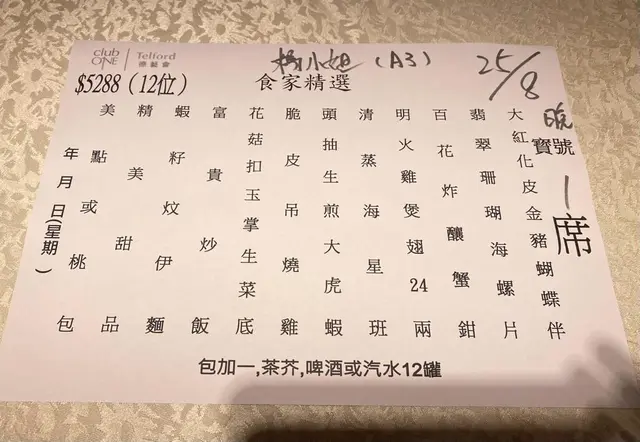 club ONE
Telford
德藝會
楊小姐 (A3)
25/8
晚
$5288 (12位)
食家精選
寶號
1席
大紅化皮金豬蝴蝶伴
翡翠珊瑚海螺片
百花炸釀蟹鉗
明火雞煲翅24兩
清蒸海星班
頭抽生煎大虎蝦
脆皮吊燒雞
花菇扣玉掌生菜底
富貴炒飯
蝦籽炆伊麵
精美甜品
美點或桃包
年 月 日(星期 )
包加一,茶芥,啤酒或汽水12罐